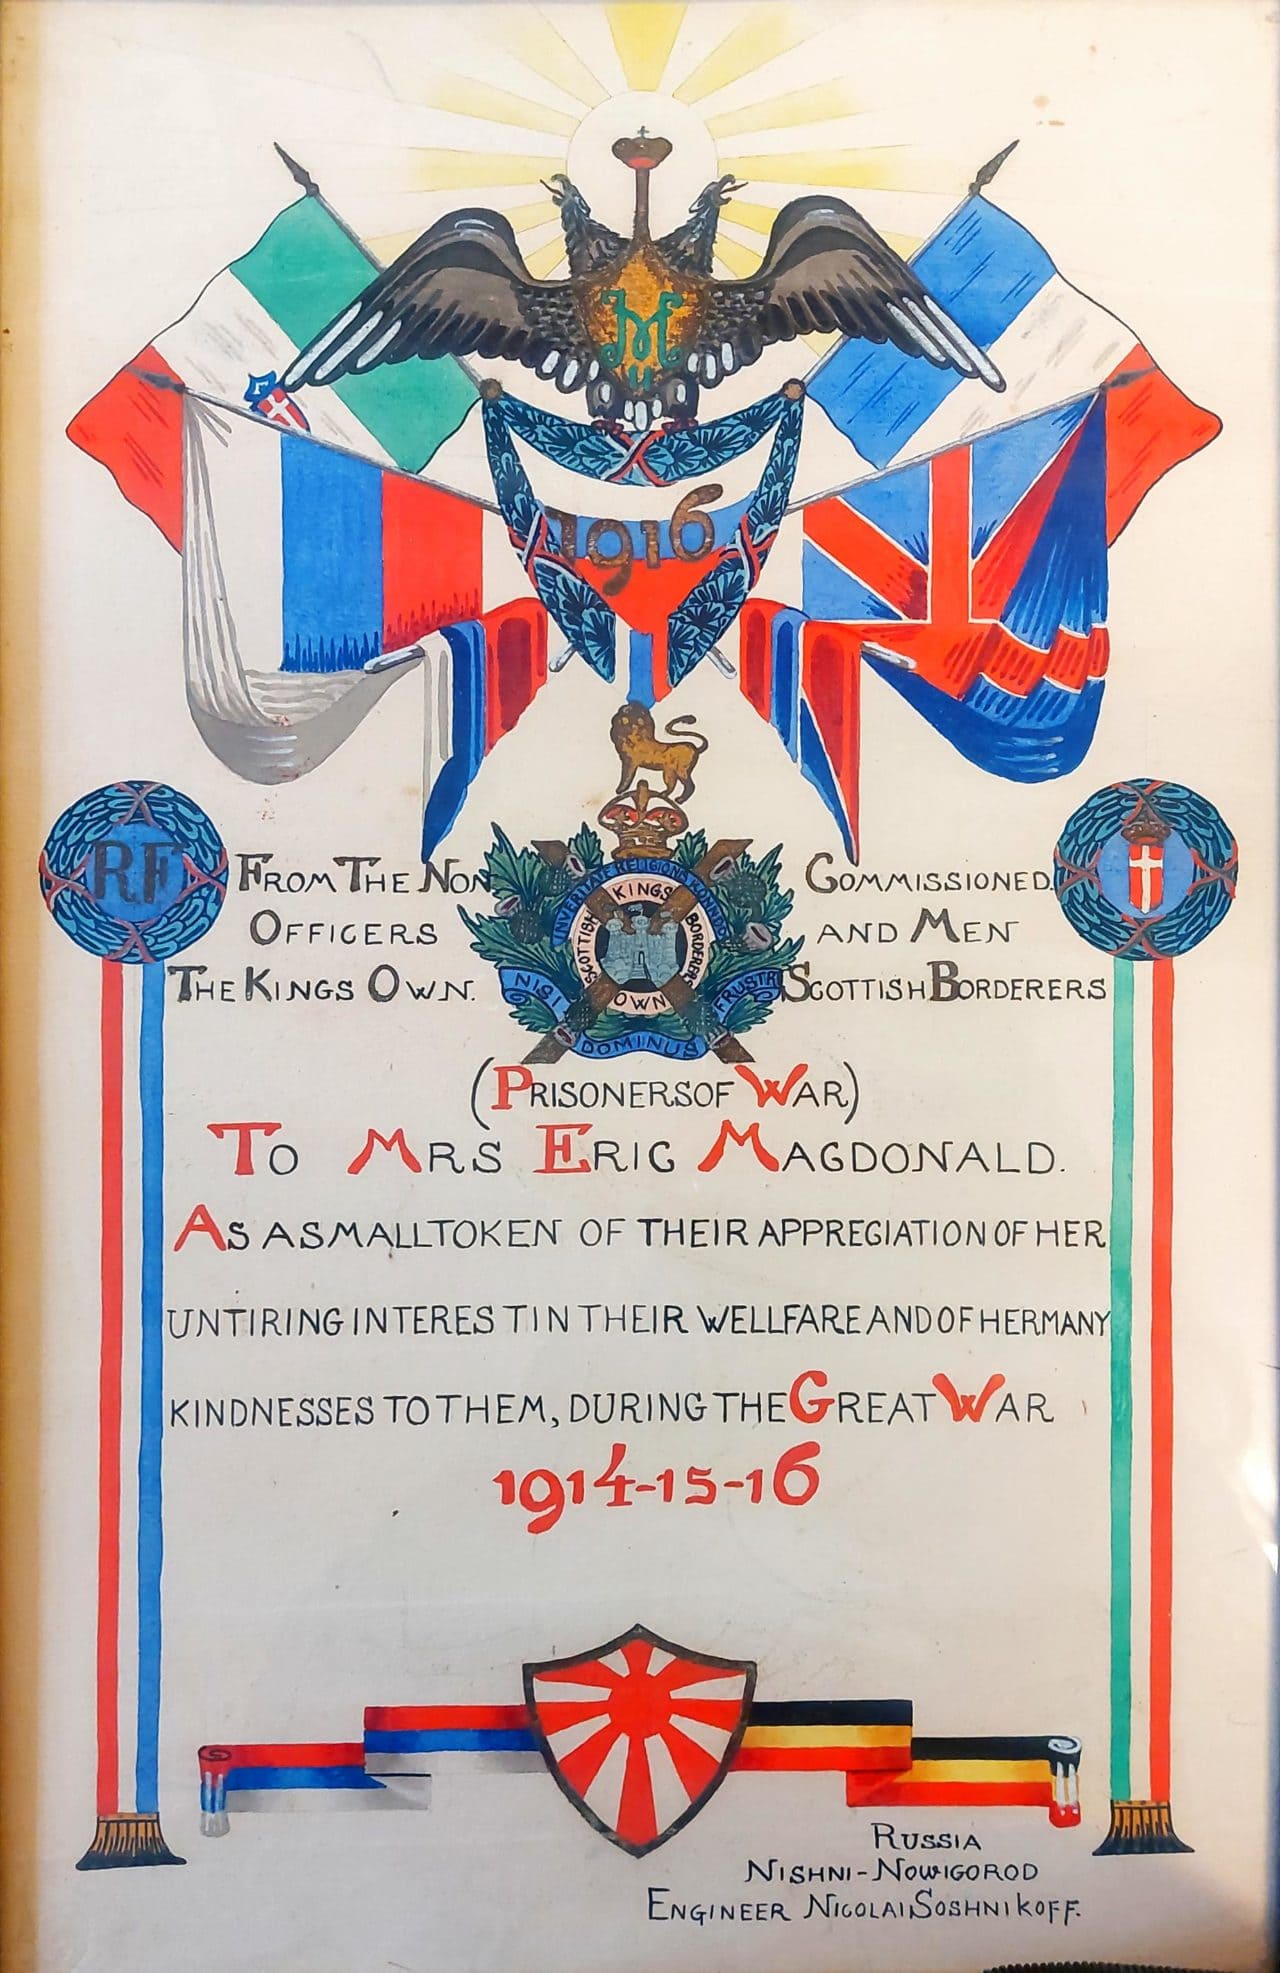 1916
RF
FROM THE NON COMMISSIONED
OFFICERS AND MEN
THE KINGS OWN. SCOTTISH BORDERERS
IN VERITATE RELIGIONIS
KINGS
OWN
SCOTTISH
BORDERERS
NISI
DOMINUS
FRUSTRA
(PRISONERS OF WAR)
TO MRS ERIC MACDONALD.
AS A SMALL TOKEN OF THEIR APPRECIATION OF HER
UNTIRING INTEREST IN THEIR WELLFARE AND OF HER MANY
KINDNESSES TO THEM, DURING THE GREAT WAR
1914-15-16
RUSSIA
NISHNI-NOWIGOROD
ENGINEER NICOLAI SOSHNIKOFF.